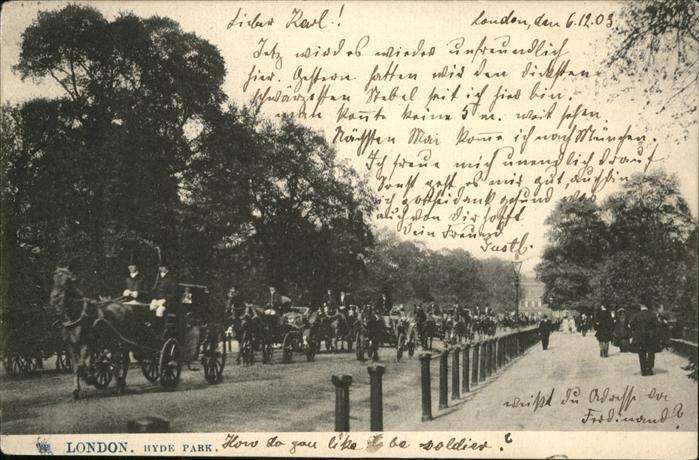 Lieber Karl!
London, den 6.12.03
Jetz wird es wieder unfreundlich
hier. Gestern hatten wir den dicksten
schwärzesten Nebel seit ich hier bin.
man konnte keine 5 m. weit sehen.
Nächsten Mai komme ich nach München.
Ich freue mich unendlich drauf
sonst geht es mir gut, auch bin
ich gottseidank gesund was
auch von dir hofft
Dein Freund
Gustl.
weißt du Adresse von
Ferdinand?
LONDON. HYDE PARK.
How do you like to be soldier?